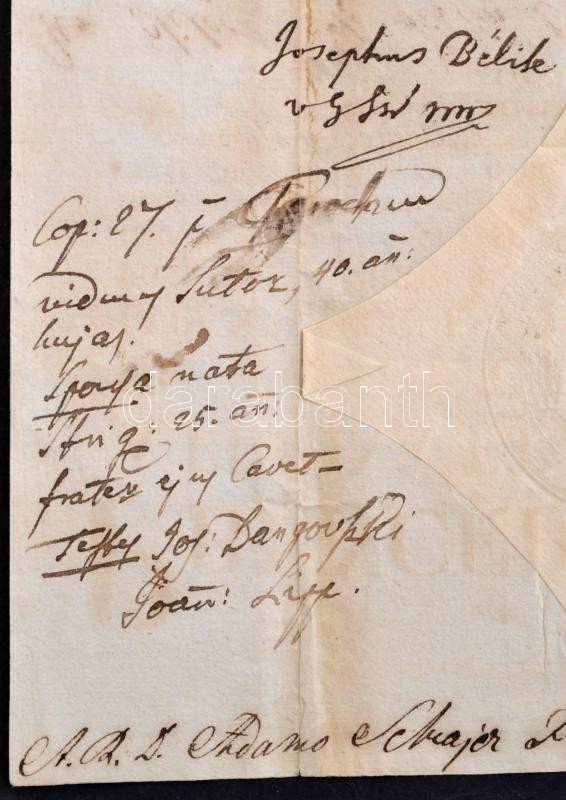 Josephus Bélik
Cop: 27.
viduus Sutor, 40. añ:
hujas.
Sponsa nata
Strig: 25. añ:
frater ejus Cavet
Testes Jos: Dangovßki
Joañ: Lipp.
A. R. D. Adamo Schajer
darabanth